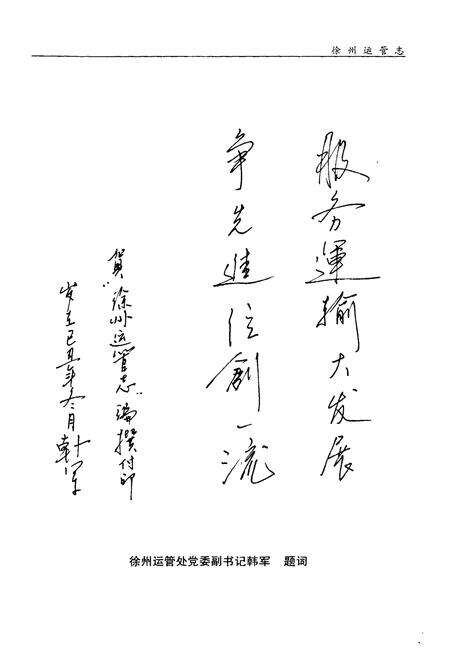 徐州运管志
服务運输大发展
争先進位創一流
賀“徐州运管志”编撰付印
岁在己丑年冬月 韩军
徐州运管处党委副书记韩军 题词